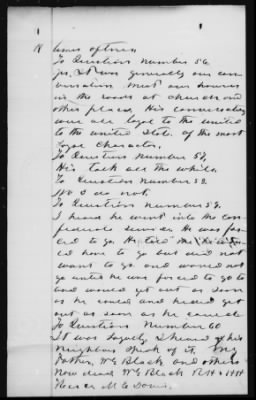 times often
To Question Number 56
yes, it was generally our con
versation. Most our houses
in the roads at church and
other places, His conversation
were all loyal to the united
to the united States of the most
loyal character.
To Question Number 57,
His talk all the while.
To Question Number 58.
No I do not.
To Question Number 59.
I heard he went into the con
federate service. He was for
ced to go. He told me
how to go but did not
want to go and would not
go until he was forced to go to
and would get out as soon
as he could and heard got
out as soon as he could
To Question Number 60
It was loyalty I heard of his
neighbors speak of it. my
Father, W G Black and others
Now dead W G Black R H